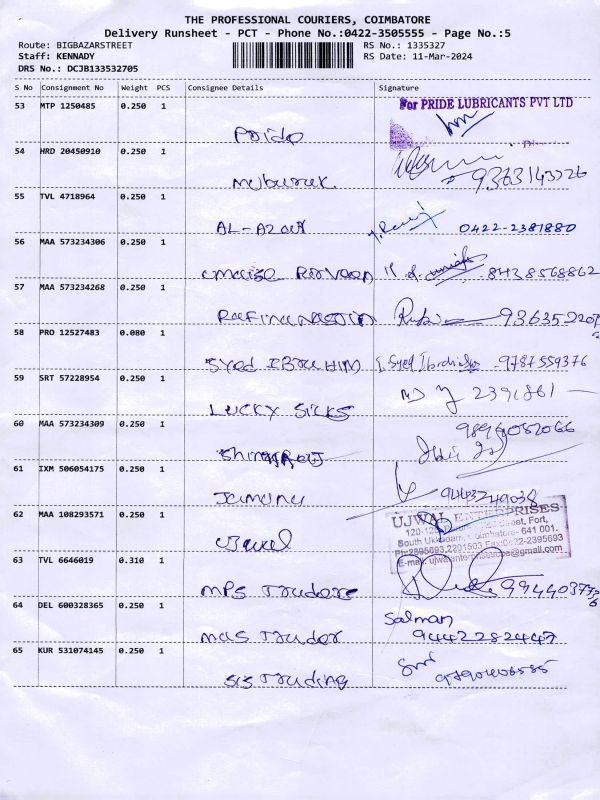 THE PROFESSIONAL COURIERS, COIMBATORE
Delivery Runsheet - PCT - Phone No.:0422-3505555 - Page No.:5
Route: BIGBAZARSTREET
RS No.: 1335327
Staff: KENNADY
RS Date: 11-Mar-2024
DRS No.: DCJB133532705
S No Consignment No Weight PCS Consignee Details Signature
53 MTP 1250485 0.250 1
For PRIDE LUBRICANTS PVT LTD
Pride
54 HRD 20450910 0.250 1
Mubarak 9363143226
55 TVL 4718964 0.250 1
AL-Azar 0422-2381880
56 MAA 573234306 0.250 1
8438568862
57 MAA 573234268 0.250 1
Rafina
58 PRO 12527483 0.080 1
Syed IBRAHIM Syed Ibrahim 9787559376
59 SRT 57228954 0.250 1
LUCKY SILKS 2391861
60 MAA 573234309 0.250 1
61 IXM 506054175 0.250 1
Jamuna 9443249038
62 MAA 108293571 0.250 1
UJWAL ENTERPRISES
Street, Fort,
South Ukkadam, Coimbatore- 641 001.
Ph:2395693,2201503 Fax:0422-2395693
@gmail.com
Ujwal
63 TVL 6646019 0.310 1
MPS Traders
64 DEL 600328365 0.250 1
Salman
MAS Trader 9442282447
65 KUR 531074145 0.250 1
SIS Trading